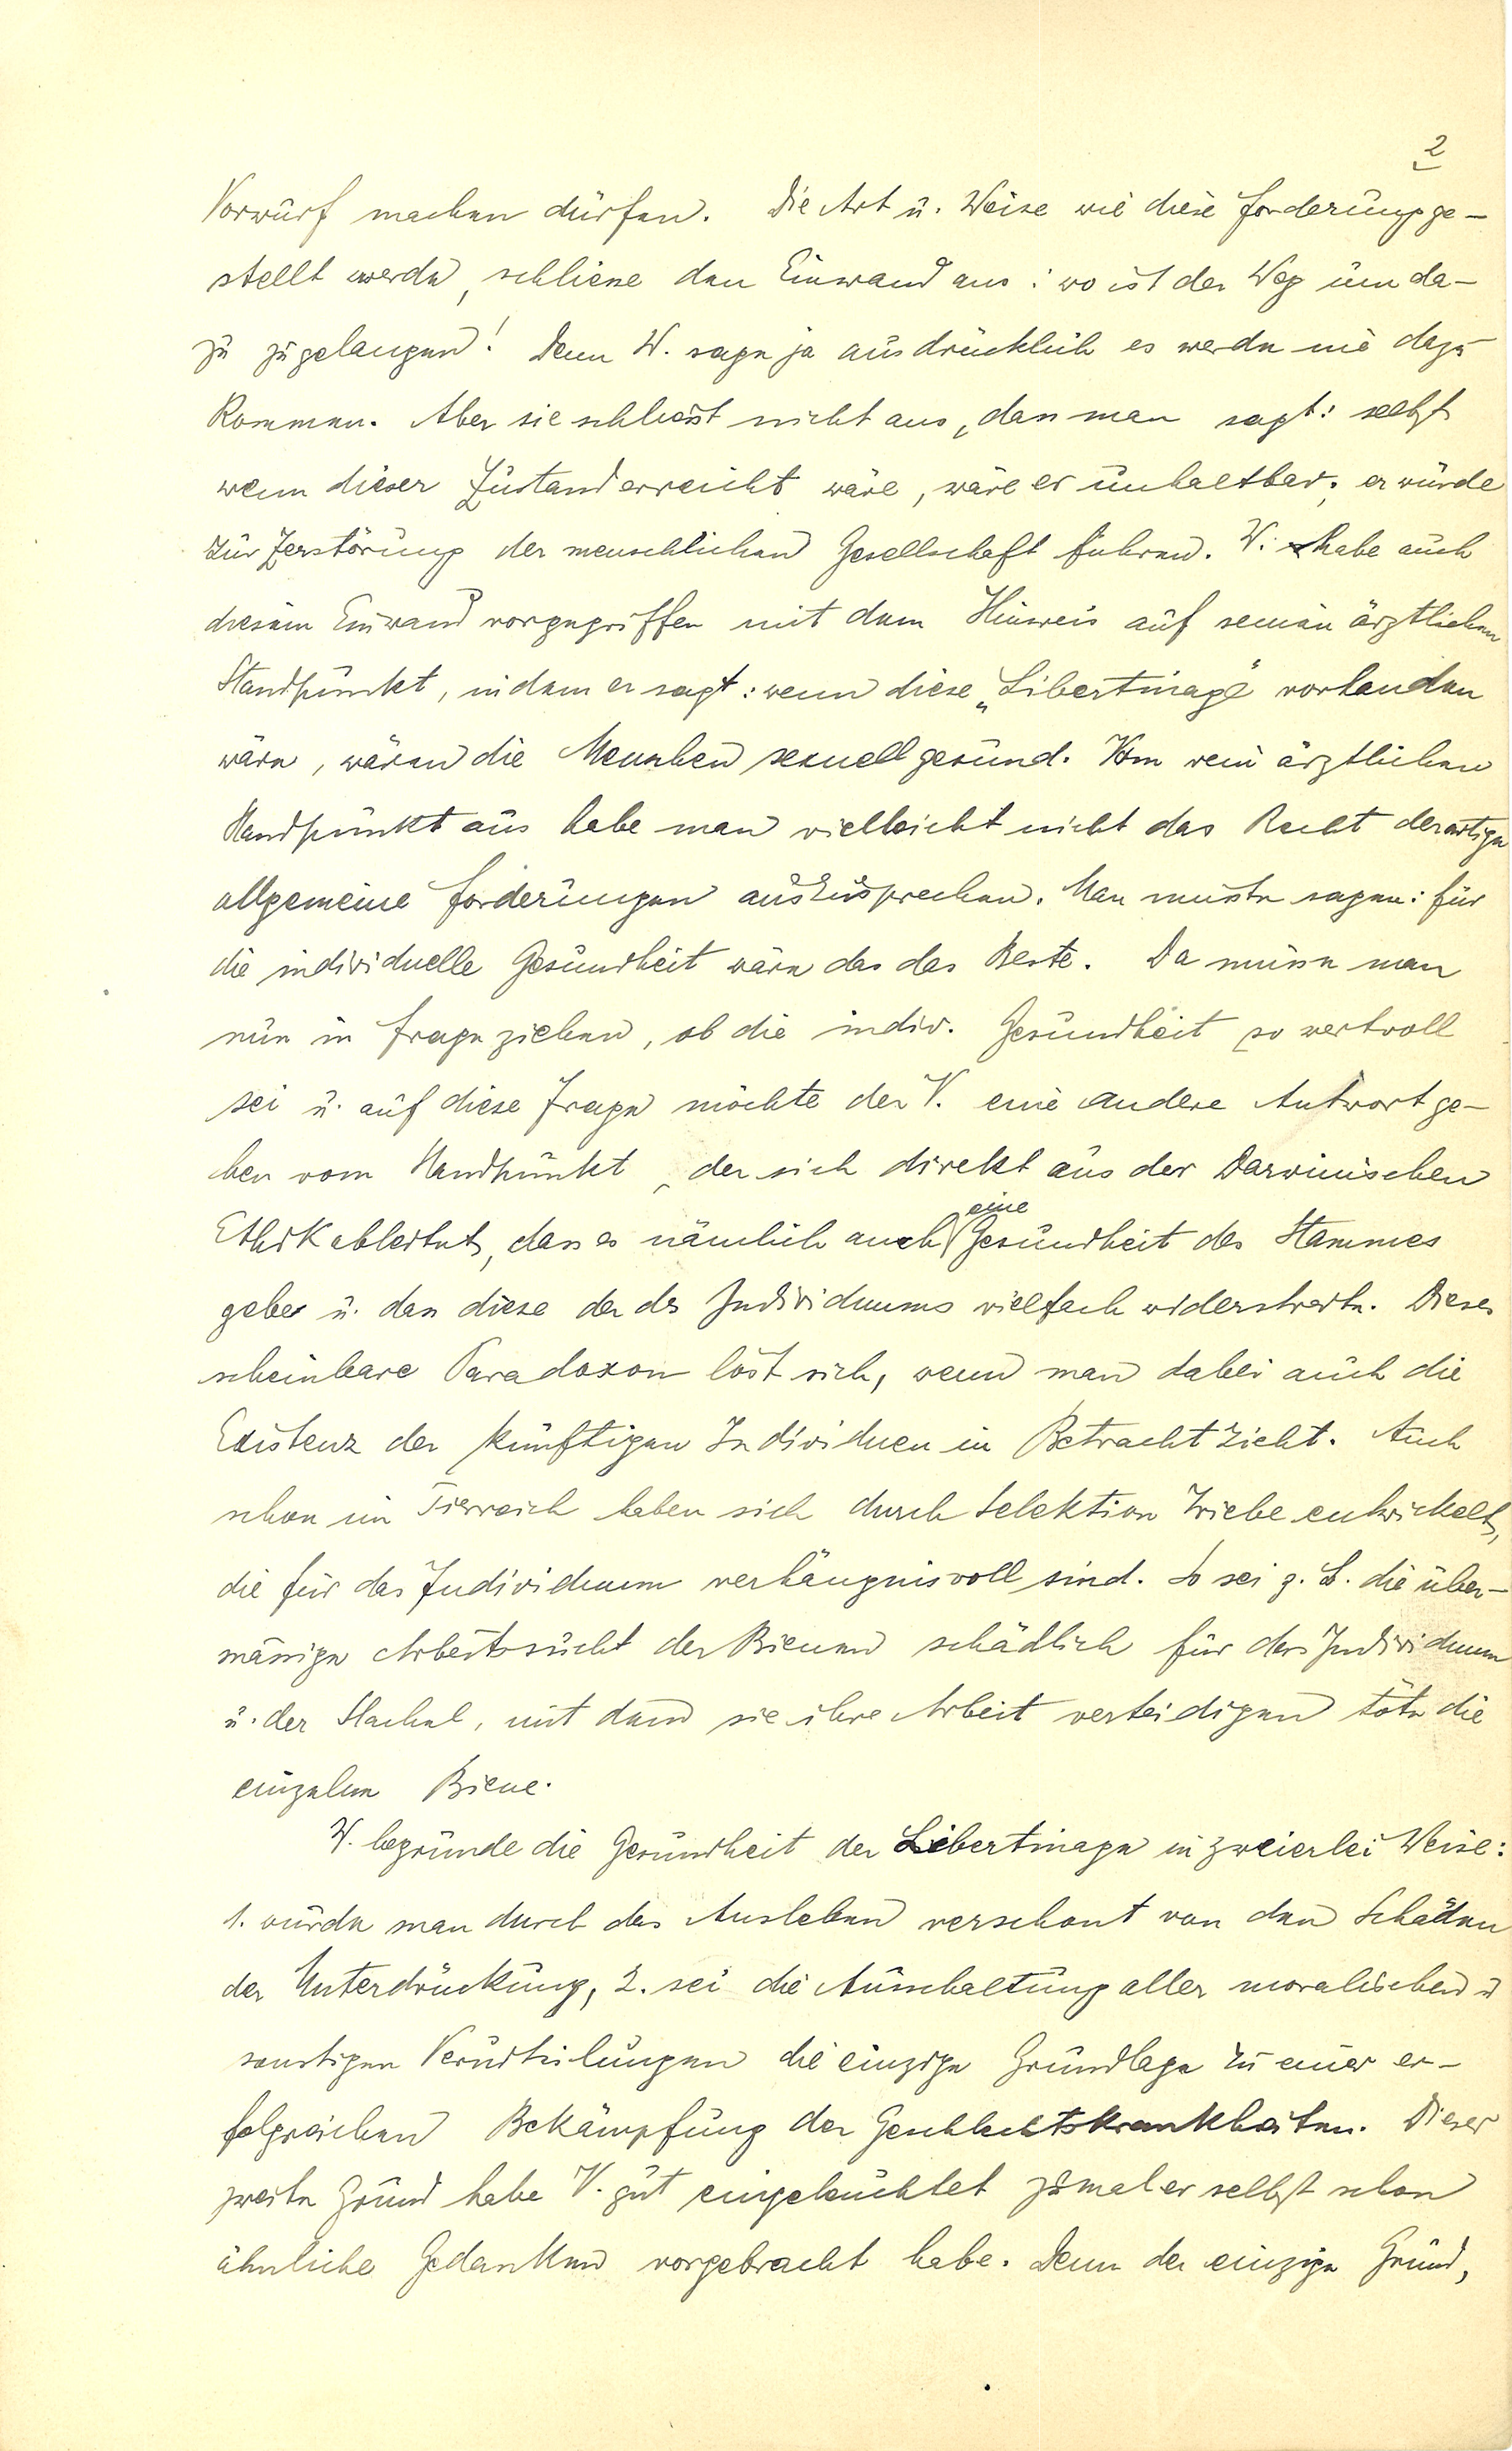 2
Vorwurf machen dürfen. Die Art u. Weise wie diese Forderung ge-
stellt werde, schliesse den Einwand aus: wo ist der Weg um da-
zu zu gelangen! Denn W. sage ja ausdrücklich es werde nie dazu
kommen. Aber sie schliesst nicht aus, dass man sagt: selbst
wenn dieser Zustand erreicht wäre, wäre er unhaltbar; er würde
zur Zerstörung der menschlichen Gesellschaft führen. W. habe auch
diesem Einwand vorgegriffen mit dem Hinweis auf seinen ärztlichen
Standpunkt, indem er sagt: wenn diese „Libertinage" vorhanden
wäre, wären die Menschen sexuell gesund. Vom rein ärztlichen
Standpunkt aus habe man vielleicht nicht das Recht derartige
allgemeine Forderungen auszusprechen. Man müsste sagen: für
die individuelle Gesundheit wäre das das Beste. Da müsse man
nun in Frage ziehen, ob die indiv. Gesundheit so wertvoll
sei u. auf diese Frage möchte der V. eine andere Antwort ge-
ben vom Standpunkt, der sich direkt aus der Darwinischen
Ethik ableitet, dass es nämlich auch eine Gesundheit des Stammes
gebe u. dass diese der des Individuums vielfach widerstreite. Dieses
scheinbare Paradoxon löst sich, wenn man dabei auch die
Existenz der künftigen Individuen in Betracht zieht. Auch
schon im Tierreich haben sich durch Selektion Triebe entwickelt,
die für das Individuum verhängnisvoll sind. So sei z. B. die über-
mässige Arbeitssucht der Bienen schädlich für das Individuum
u. der Stachel, mit dem sie ihre Arbeit verteidigen töte die
einzelne Biene.
W. begründe die Gesundheit der Libertinage in zweierlei Weise:
1. würde man durch das Ausleben verschont von den Schäden
der Unterdrückung, 2. sei die Ausschaltung aller moralischen u
sonstigen Verurteilungen die einzige Grundlage zu einer er-
folgreichen Bekämpfung der Geschlechtskrankheiten. Dieser
zweite Grund habe V. gut eingeleuchtet zumal er selbst schon
ähnliche Gedanken vorgebracht habe. Denn der einzige Grund,